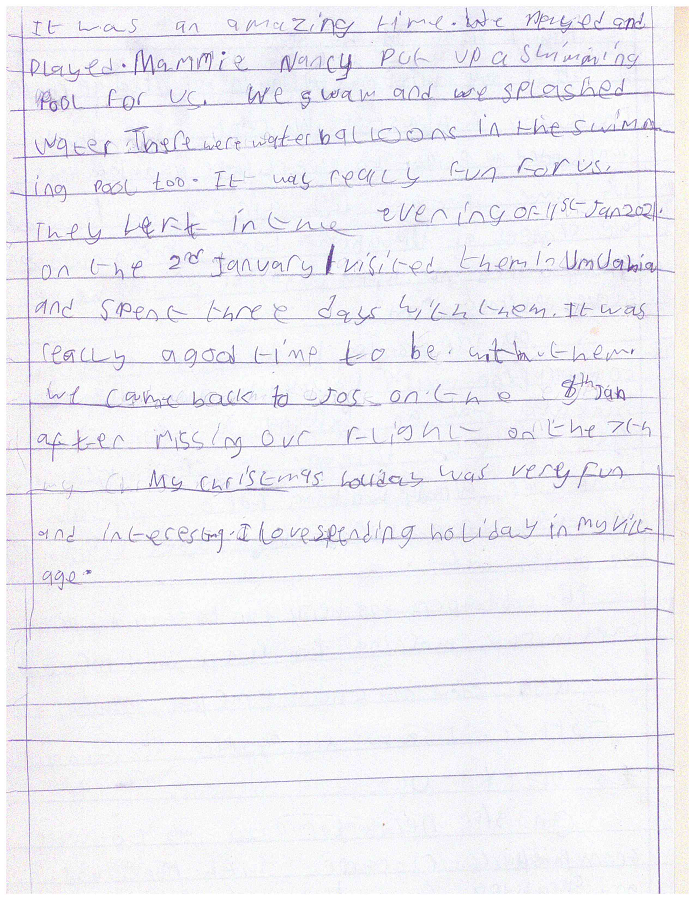 It was an amazing time. We played and
played. Mammie Nancy put up a swimming
pool for us. We swam and we splashed
water. There were water balloons in the swimm
ing pool too. It was really fun for us.
They left in the evening of 1st Jan 2021.
on the 2nd January I visited them in Umuahia
and spent three days with them. It was
really a good time to be with them.
We came back to Jos on the 8th Jan
after missing our flight on the 7th
My christmas holiday was very fun
and interesting. I love spending holiday in my vill
age.